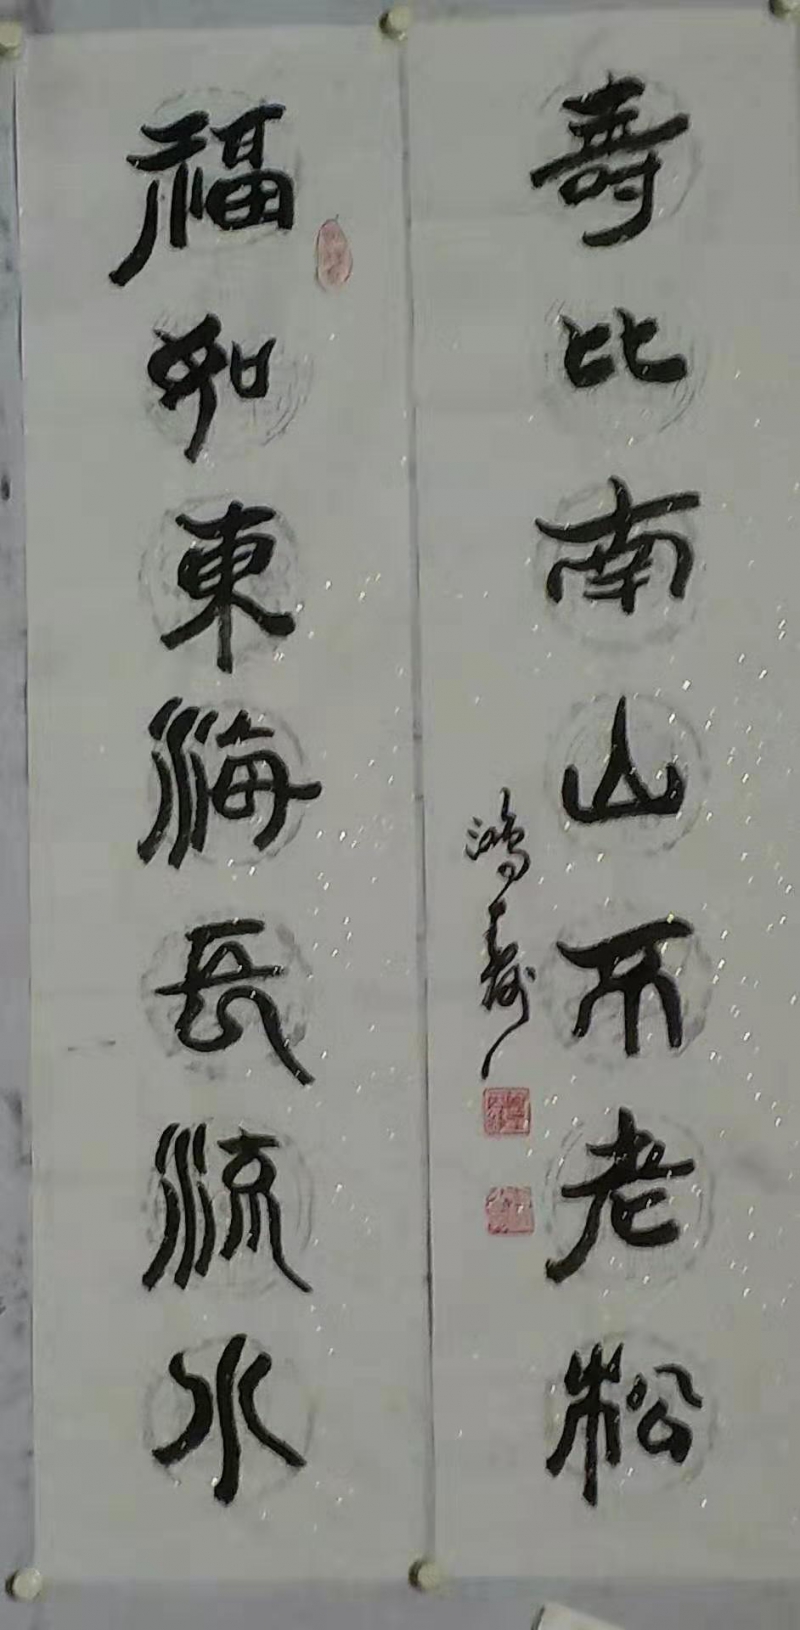 福如東海長流水
壽比南山不老松
鴻壽